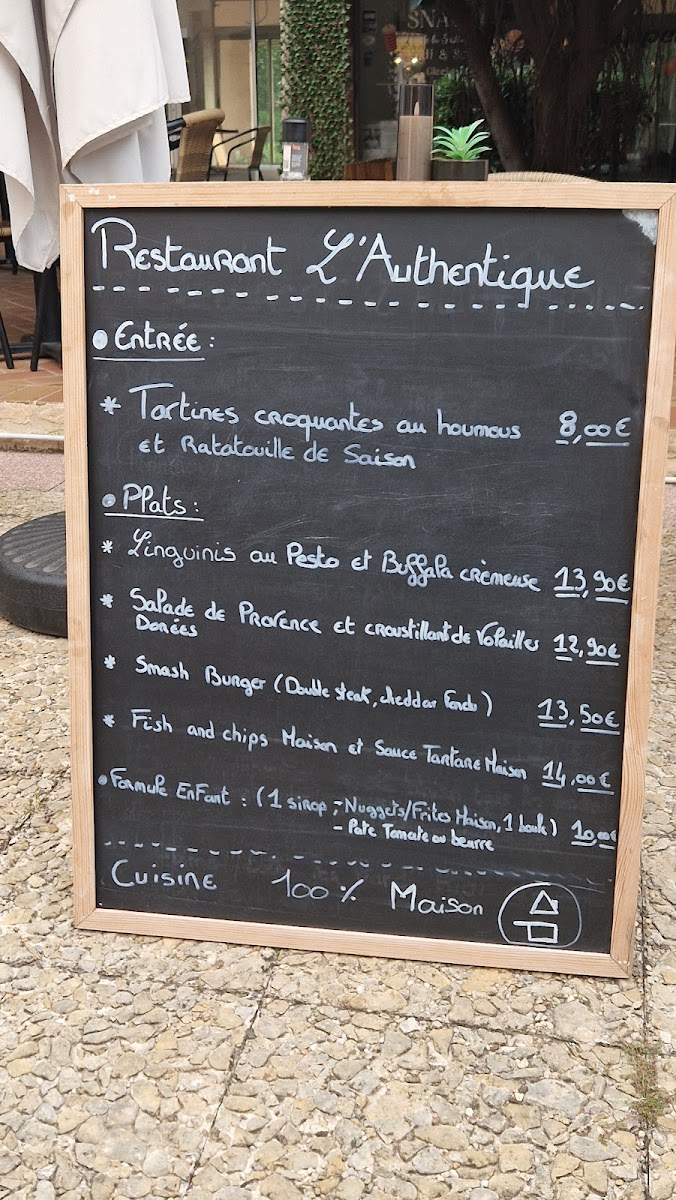 SNA
Restaurant L'Authentique
Entrée :
* Tartines croquantes au houmous 8,00€
et Ratatouille de Saison
Plats :
* Linguinis au Pesto et Buffala crèmeuse 13,90€
* Salade de Provence et croustillant de Volailles 12,90€
Dorées
* Smash Burger (Double steak, cheddar fondu) 13,50€
* Fish and chips Maison et Sauce Tartare Maison 14,00€
Formule Enfant : (1 sirop, - Nuggets/Frites Maison, 1 boule) 10,00€
- Pate Tomate ou beurre
Cuisine 100% Maison